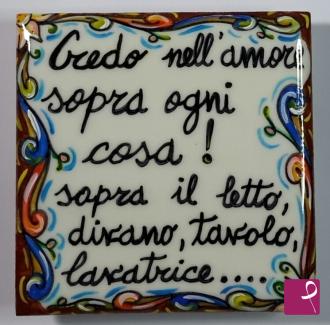 Credo nell'amore
sopra ogni
cosa!
sopra il letto,
divano, tavolo,
lavatrice....